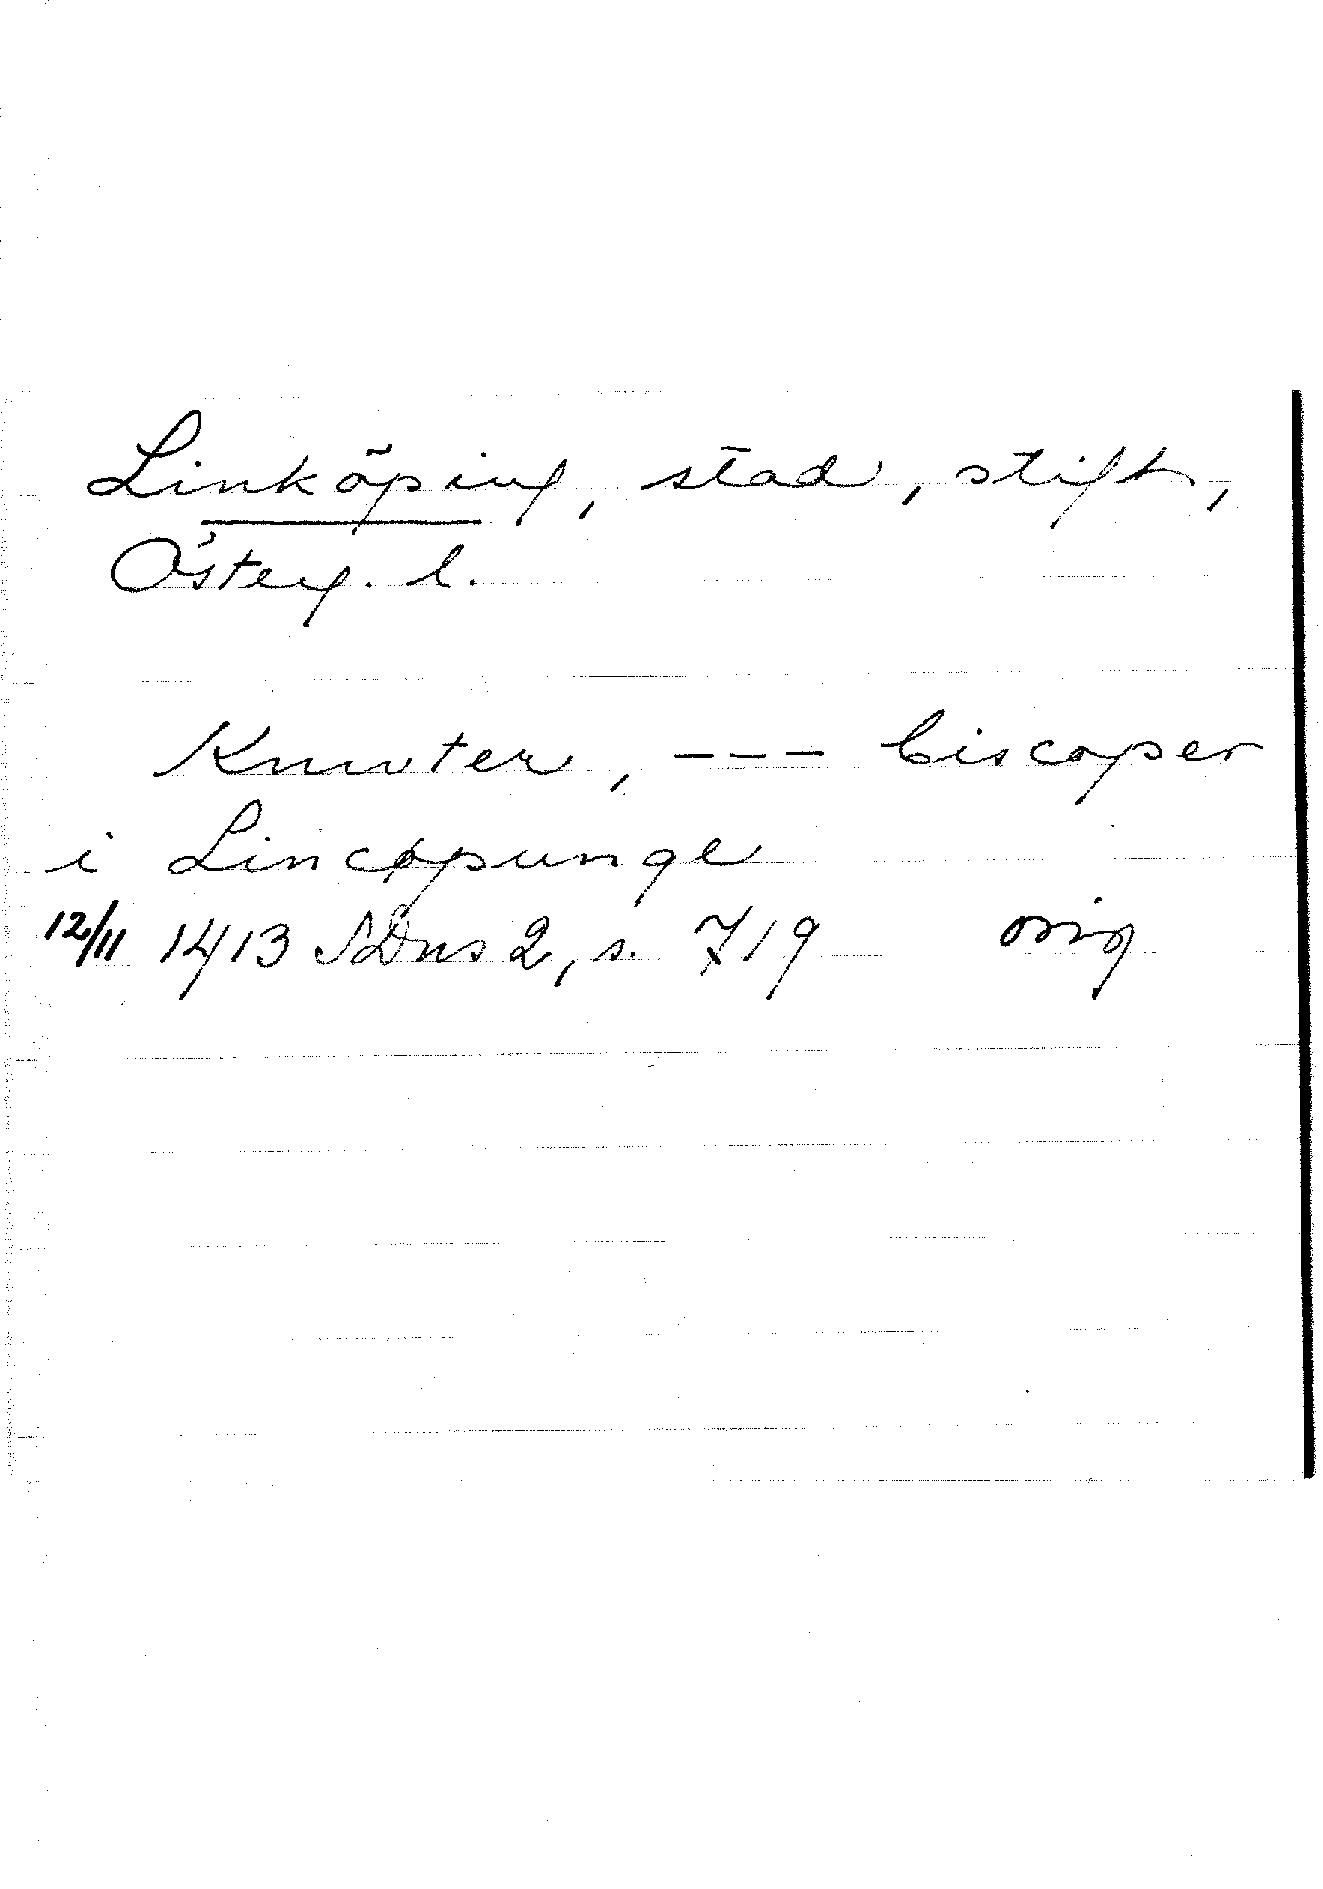 Linköping, stad, stift,
Österg. l.
Knwter, --- biscoper
i Lincøpunge
12/11 1413 SDns 2, s. 719 orig